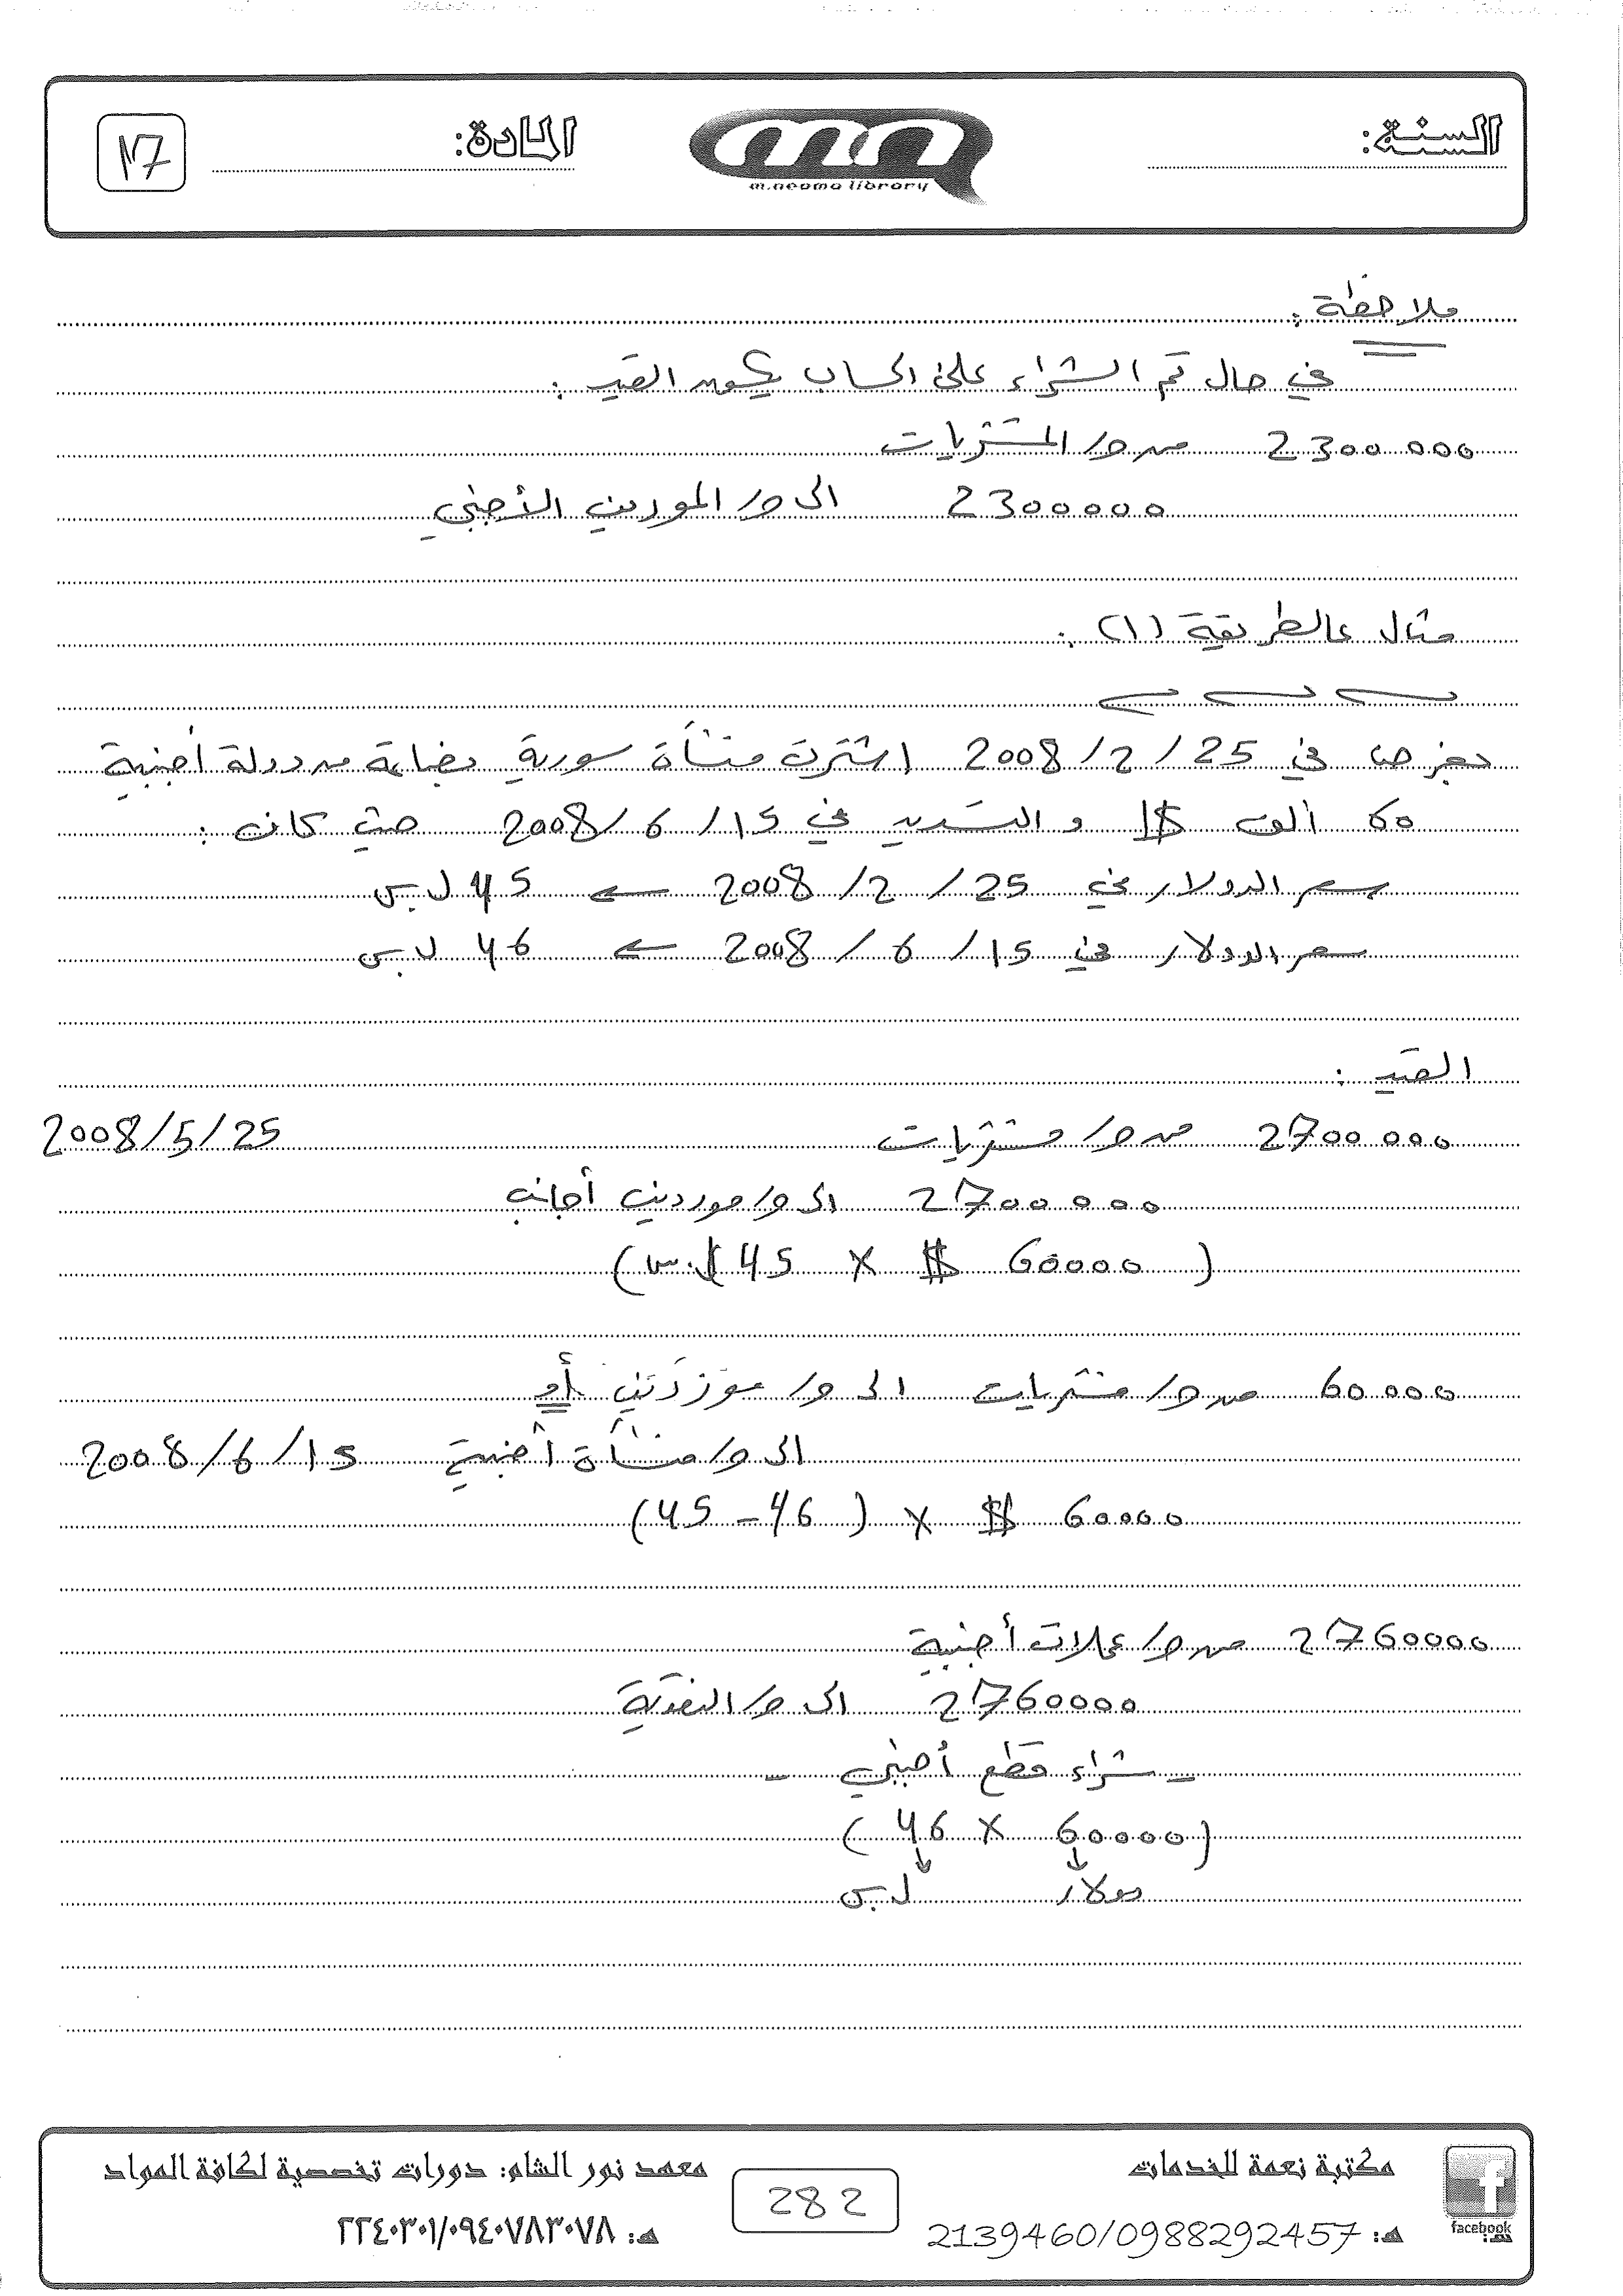 السنة:
m.neama library
المادة:
17
ملاحظة:
في حال تم الشراء على الحساب يكون القيد:
2300000 من ح/ المشتريات
2300000 الى ح/ الموردين الأجنبي
مثال عالطريقة (1):
بفرض ان في 25/2/2008 اشترت منشأة سورية بضاعة من دولة أجنبية
60 ألف $ و التسديد في 15/6/2008 حيث كان:
سعر الدولار في 25/2/2008 ← 45 ل.س
سعر الدولار في 15/6/2008 ← 46 ل.س
القيد:
2700000 من ح/ مشتريات 25/5/2008
2700000 الى ح/ موردين أجانب
(60000 $ × 45 ل.س)
60000 من ح/ مشتريات الى ح/ موردين أو
الى ح/ منشأة أجنبية 15/6/2008
60000 $ × (46 - 45)
2760000 من ح/ عملات أجنبية
2760000 الى ح/ النقدية
- شراء قطع أجنبي -
(60000 × 46)
دولار ل.س
مكتبة نعمة للخدمات
هـ: 2139460/0988292457
facebook
282
معهد نور الشام: دورات تخصصية لكافة المواد
هـ: ٢٢٤٠٣٠١/٠٩٤٠٧٨٣٠٧٨